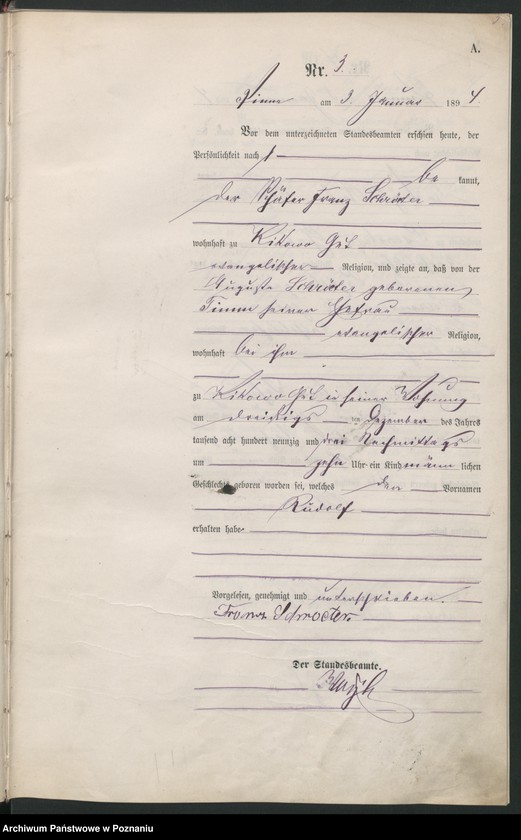 A.
Nr. 3.
Pinne am 3. Januar 1894
Vor dem unterzeichneten Standesbeamten erschien heute, der
Persönlichkeit nach
be kannt,
der Schäfer Franz Schröter
wohnhaft zu Kikowo Gut
evangelischer Religion, und zeigte an, daß von der
Auguste Schröter geborenen
Timm seiner Ehefrau
evangelischer Religion,
wohnhaft bei ihm
zu Kikowo Gut in seiner Wohnung
am dreißigs ten Dezember des Jahres
tausend acht hundert neunzig und drei Nachmittags
um zehn Uhr ein Kind männ lichen
Geschlechts geboren worden sei, welches den Vornamen
Rudolf
erhalten habe
Vorgelesen, genehmigt und unterschrieben.
Franz Schroeter
Der Standesbeamte.
Archiwum Państwowe w Poznaniu